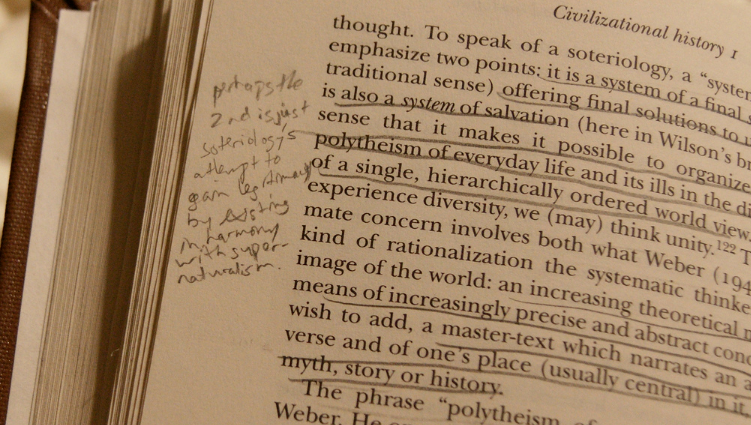 Civilizational history 1
thought. To speak of a soteriology, a “syste
emphasize two points: it is a system of a final s
traditional sense) offering final solutions to u
is also a system of salvation (here in Wilson's br
sense that it makes it possible to organize
polytheism of everyday life and its ills in the di
of a single, hierarchically ordered world view.
experience diversity, we (may) think unity.¹²² T
mate concern involves both what Weber (194
kind of rationalization the systematic thinke
image of the world: an increasing theoretical m
means of increasingly precise and abstract conc
wish to add, a master-text which narrates an a
verse and of one's place (usually central) in it
myth, story or history.
The phrase “polytheism of
Weber. He
perhaps the
2nd is just
soteriology's
attempt to
gain legitimacy
by existing
in harmony
with super-
naturalism.